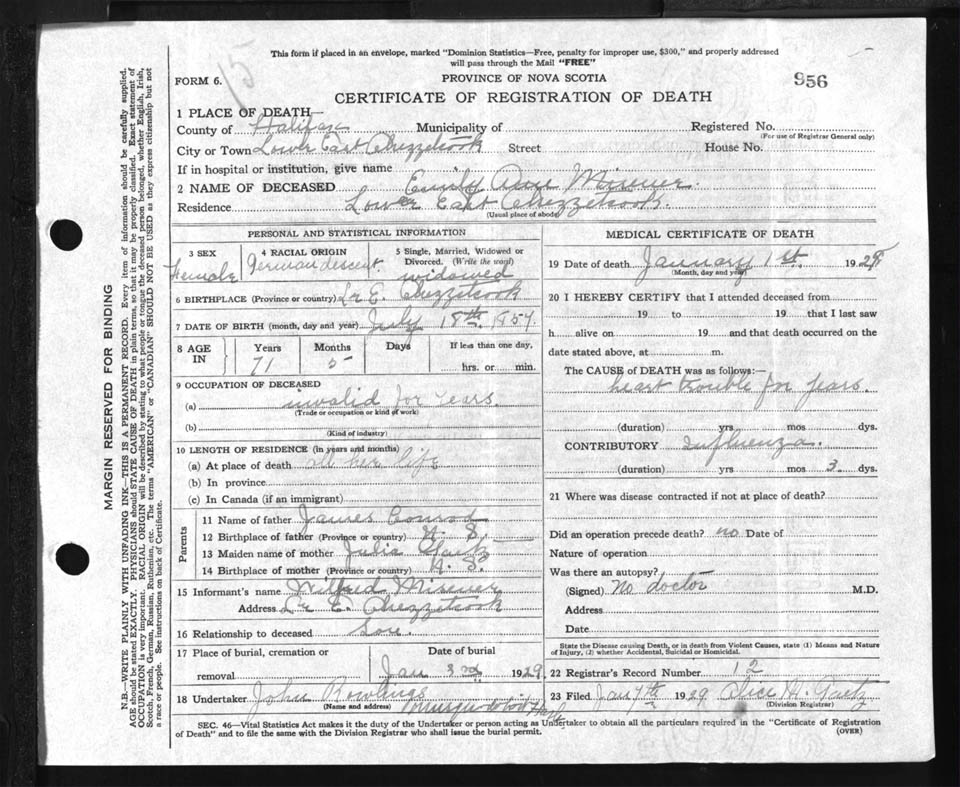 This form if placed in an envelope, marked "Dominion Statistics—Free, penalty for improper use, $300," and properly addressed
will pass through the Mail "FREE"
15
FORM 6.
PROVINCE OF NOVA SCOTIA
956
CERTIFICATE OF REGISTRATION OF DEATH
1 PLACE OF DEATH—
County of Halifax Municipality of Registered No.
(For use of Registrar General only)
City or Town Lower East Chezzetcook Street House No.
If in hospital or institution, give name
2 NAME OF DECEASED Emily Ann Misener
Residence Lower East Chezzetcook.
(Usual place of abode)
PERSONAL AND STATISTICAL INFORMATION
3 SEX Female
4 RACIAL ORIGIN German descent.
5 Single, Married, Widowed or
Divorced. (Write the word)
widowed
6 BIRTHPLACE (Province or country) Lr E. Chezzetcook
7 DATE OF BIRTH (month, day and year) July 18th. 1857.
8 AGE IN Years Months Days If less than one day,
71 5 hrs. or min.
9 OCCUPATION OF DECEASED
(a) invalid for years.
(Trade or occupation or kind of work)
(b)
(Kind of industry)
10 LENGTH OF RESIDENCE (in years and months)
(a) At place of death all her life
(b) In province
(c) In Canada (if an immigrant)
Parents
11 Name of father James Conrod
12 Birthplace of father (Province or country) N. S.
13 Maiden name of mother Julia Gaetz
14 Birthplace of mother (Province or country) N. S.
15 Informant's name Wilfred Misener
Address Lr E. Chezzetcook
16 Relationship to deceased Son.
17 Place of burial, cremation or Date of burial
removal Jan 3rd 1929.
18 Undertaker John Rowlings
(Name and address) Musquodoboit Harb
MEDICAL CERTIFICATE OF DEATH
19 Date of death January 1st. 1929
(Month, day and year)
20 I HEREBY CERTIFY that I attended deceased from
19 to 19 that I last saw
h alive on 19 and that death occurred on the
date stated above, at m.
The CAUSE of DEATH was as follows:
heart trouble for years.
(duration) yrs mos dys.
CONTRIBUTORY Influenza.
(duration) yrs mos 3. dys.
21 Where was disease contracted if not at place of death?
Did an operation precede death? no Date of
Nature of operation
Was there an autopsy?
(Signed) No doctor M.D.
Address
Date
State the Disease causing Death, or in death from Violent Causes, state (1) Means and Nature
of Injury, (2) whether Accidental, Suicidal or Homicidal.
22 Registrar's Record Number 12
23 Filed Jan 7th 1929 Alice M. Gaetz
(Division Registrar)
SEC. 46—Vital Statistics Act makes it the duty of the Undertaker or person acting as Undertaker to obtain all the particulars required in the "Certificate of Registration
of Death" and to file the same with the Division Registrar who shall issue the burial permit.
(OVER)
MARGIN RESERVED FOR BINDING
N.B.—WRITE PLAINLY WITH UNFADING INK—THIS IS A PERMANENT RECORD. Every item of information should be carefully supplied.
AGE should be stated EXACTLY. PHYSICIANS should STATE CAUSE OF DEATH in plain terms, so that it may be properly classified. Exact statement of
OCCUPATION is very important. RACIAL ORIGIN will be described by stating to what people or tongue the deceased person belonged, whether English, Irish,
Scotch, French, German, Russian, Ruthenian, etc. The terms "AMERICAN" or "CANADIAN" SHOULD NOT BE USED as they express citizenship but not
a race or people. See instructions on back of Certificate.